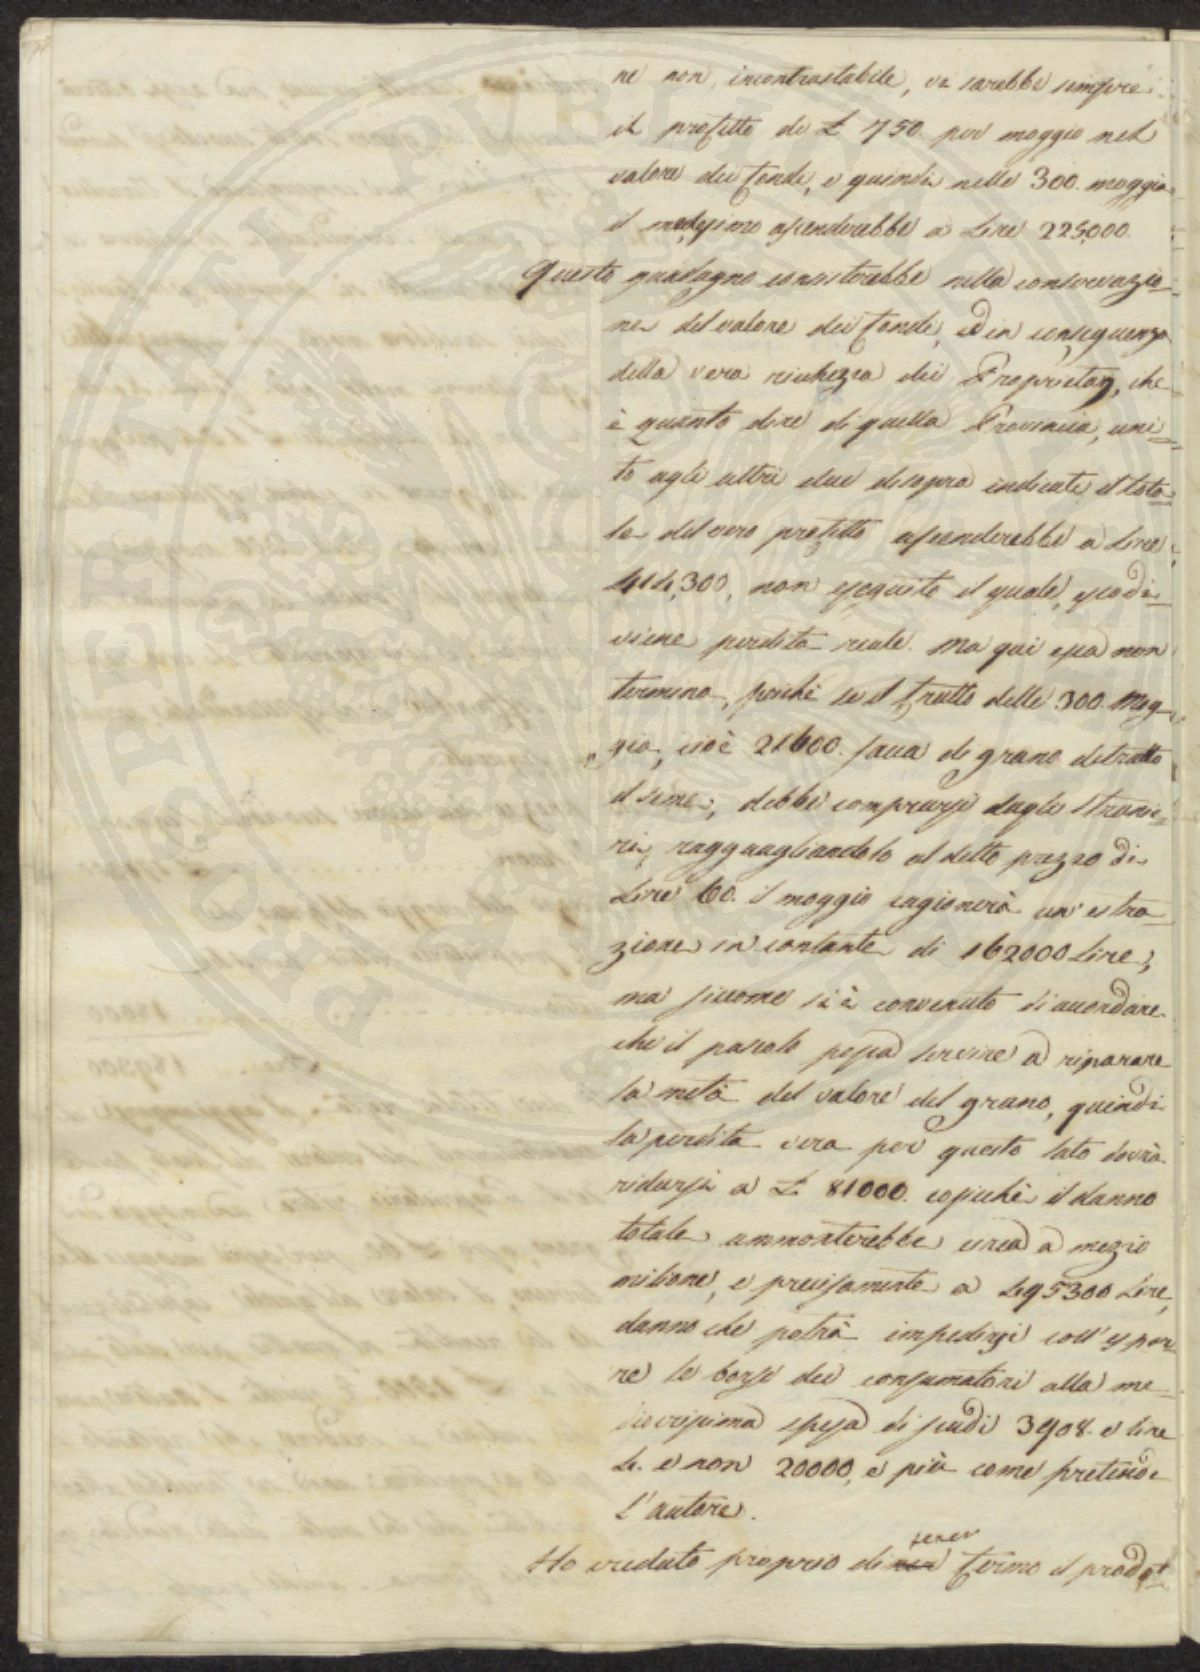 ne non incontrastabile, vi sarebbe sempre
il profitto di £ 750 per moggio nel
valore dei fondi, e quindi nelle 300. moggia
il medesimo ascenderebbe a Lire 225,000.
Questo guadagno consisterebbe nella conservazio=
ne del valore dei fondi, ed in conseguenza
della vera ricchezza dei Proprietarj, che
è quanto dire di quella Provincia, uni=
to agli altri due disopra indicati il tota=
le del vero profitto ascenderebbe a Lire
414,300, non eseguito il quale, esso di=
viene perdita reale. Ma qui essa non
termina, poichè se il frutto delle 300. Mog=
gia, cioè 21600. sacca di grano detratto
il seme, debbe comprarsi dagli stranie=
ri, ragguagliandolo al detto prezzo di
Lire 60. il moggio cagionerà un' estra=
zione in contante di 162000 Lire;
ma siccome si è convenuto di accordare
che il pascolo possa servire a riparare
la metà del valore del grano, quindi
la perdita vera per questo lato dovrà
ridursi a £ 81000. cosicchè il danno
totale ammonterebbe circa a mezzo
milione, e precisamente a 495300 Lire,
danno che potrà impedirsi coll' espor=
re le borse dei consumatori alla me=
diocrissima spesa di scudi 3908. e lire
4. e non 20000, e più come pretende
l'autore.
Ho creduto proprio di tener fermo il prodot=
PROPRIETATIS PVBLICAE
15000
169300